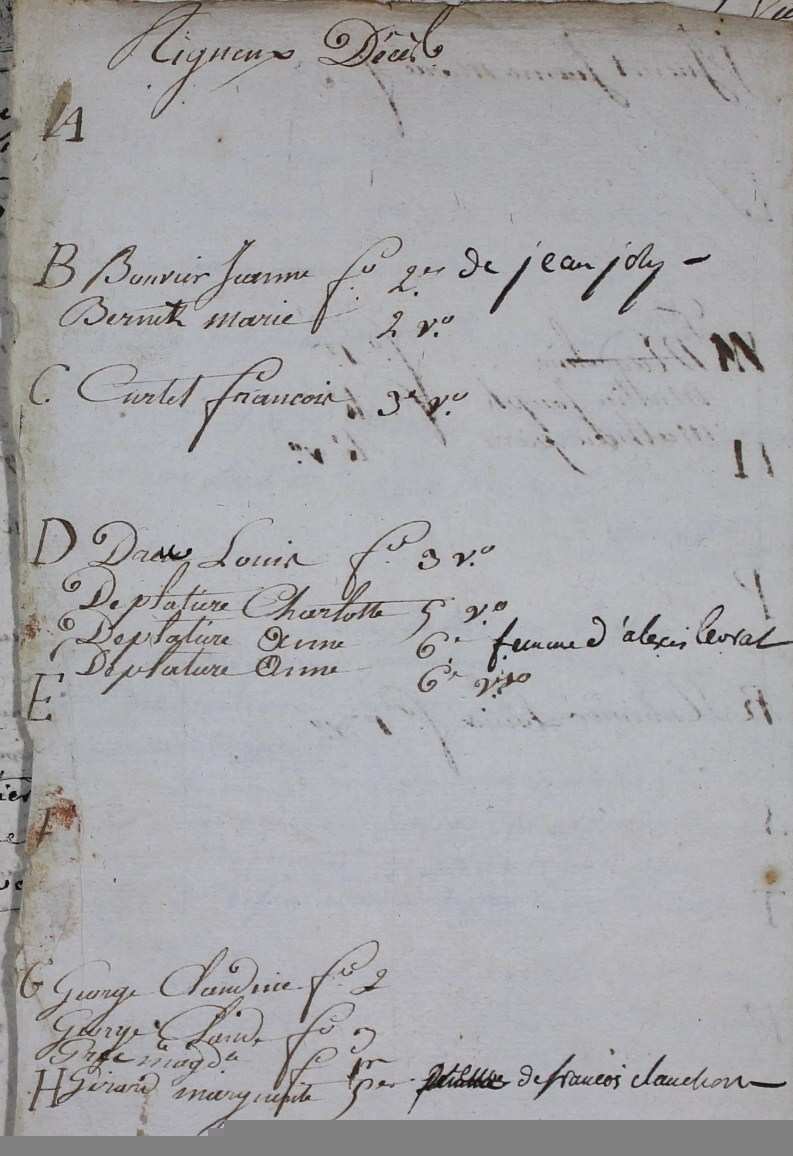 Rigneux Décès
A
B Bouvier Jeanne fo 2er de jean joly -
Bernet marie 2 vo
C Curtet francois 3e vo
D Louis fo 3 vo
Deplature Charlotte 5 vo
Deplature Anne 6e femme d'alexis levrat
Deplature Anne 6e vo
E
F
G George Claudine fo 2
George Claude fo 3
magd. fo
H Girard marguerite 5er de francois clauchon